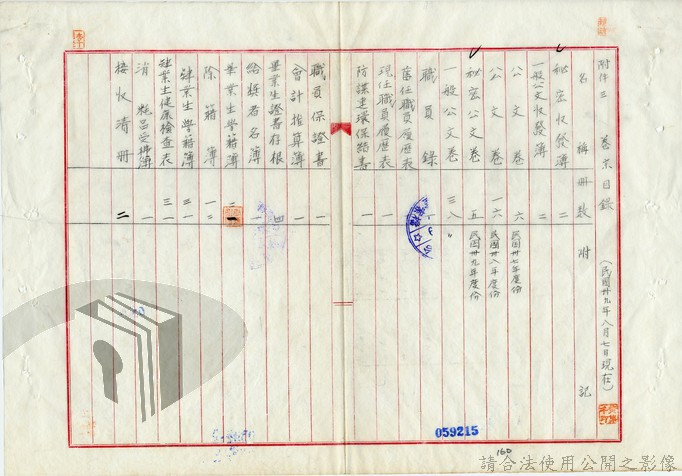 附件三 卷宗目錄 (民國卅九年八月七日現在)
名稱 冊數 附記
秘密收發簿 二
一般公文收發簿 二
公文卷 六 民國卅七年度份
公文卷 一六 民國卅八年度份
秘密公文卷 五 民國卅九年度份
一般公文卷 三八 〃
職員錄 一
舊任職員履歷表 一
現任職員履歷表 一
防諜連環保結書 一
職員保證書 一
會計推算簿 一
畢業生證書存根 四
給獎者名簿 一
畢業生學籍簿 一
除籍簿 一二
肄業生學籍簿 三一
肄業生健康檢查表 三
消耗品受拂簿 一
接收清冊 二
059215
160
請合法使用公開之影像